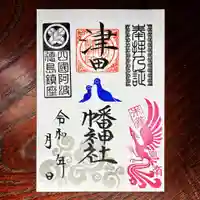 奉拝之証
津田
八幡神社
四國阿波
徳島鎮座
令和 年
月 日